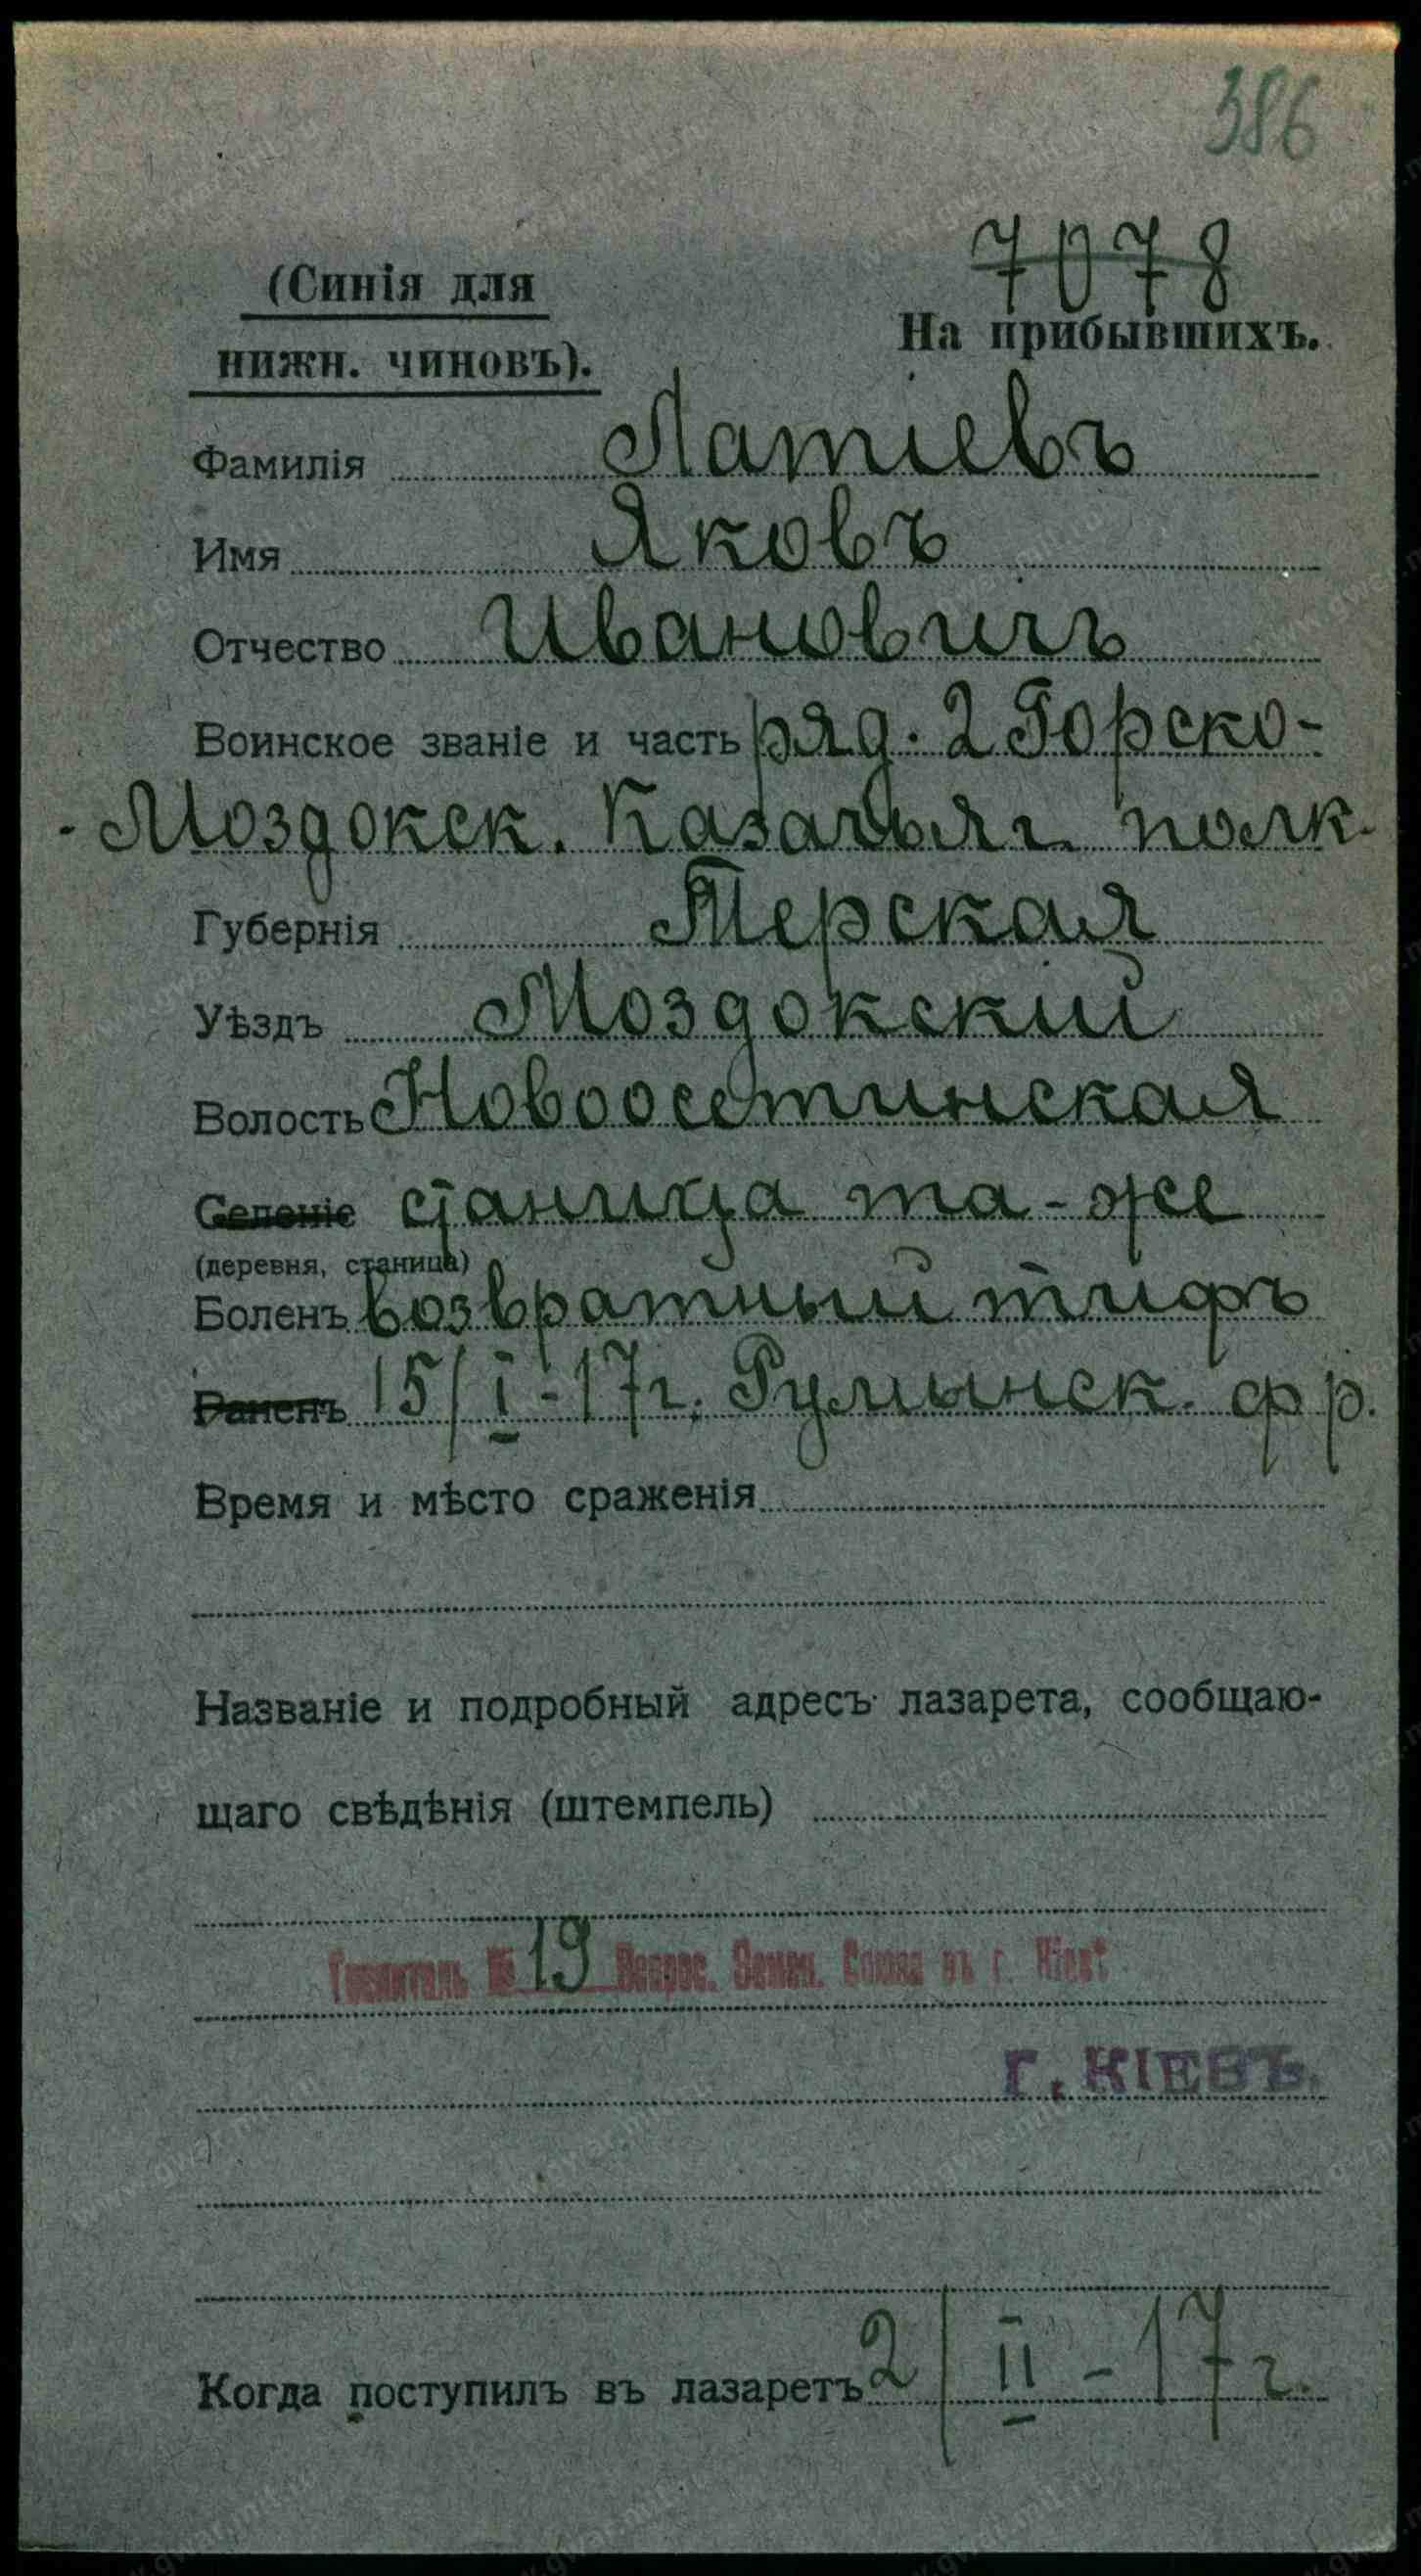 386
7078
(Синія для
нижн. чиновъ).
На прибывшихъ.
Фамилія Латіевъ
Имя Яковъ
Отчество Ивановичъ
Воинское званіе и часть ряд. 2 Горско-
- Моздокск. Казачьяг полк.
Губернія Терская
Уѣздъ Моздокскій
Волость Новоосетинская
Селеніе станица та-же
(деревня, станица)
Боленъ возвратный тифъ
Раненъ 15/I-17г. Румынск. фр.
Время и мѣсто сраженія
Названіе и подробный адресъ лазарета, сообщаю-
щаго свѣдѣнія (штемпель)
Госпиталь № 19 Всерос. Земск. Союза въ г. Кіевѣ
Г. КІЕВЪ.
Когда поступилъ въ лазаретъ 2/II-17г.
www.gwar.mil.ru